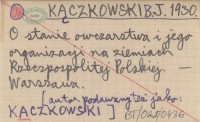 KĄCZKOWSKI B.J. 1930.
O stanie owczarstwa i jego
organizacji na ziemiach
Rzeczpospolitej Polskiej. —
Warszawa.
[autor podawany też jako:
KĄCZKOWSKI]